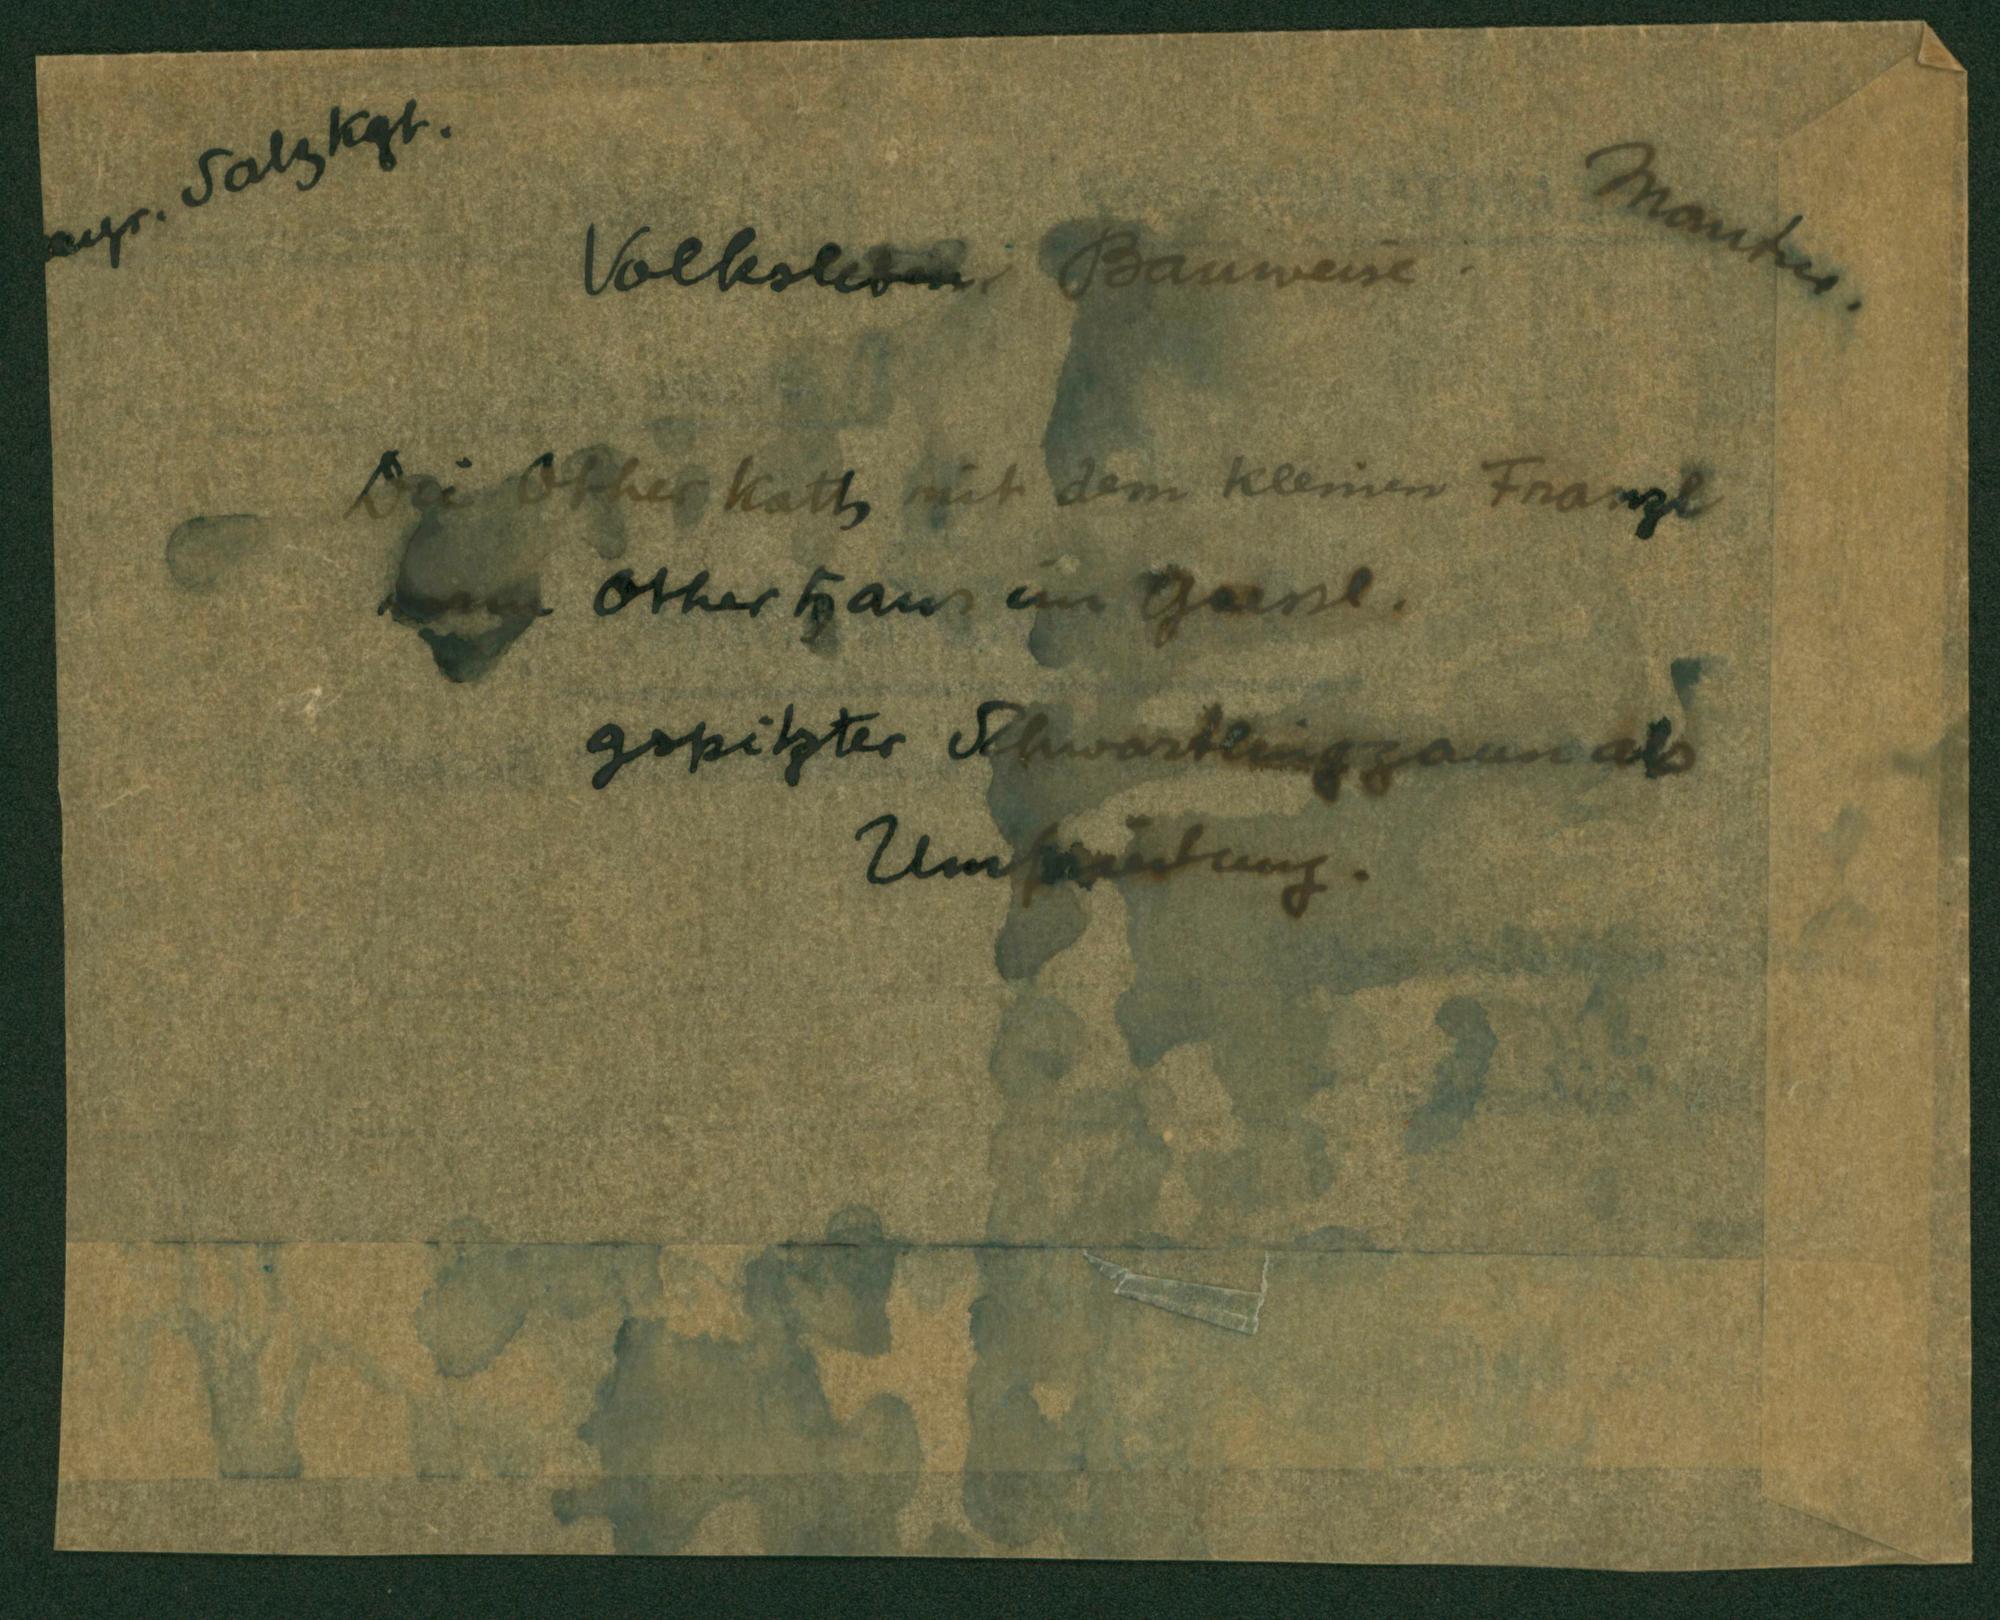 Salzkgt.
Volksleben Bauweise.
Die Other Kath mit dem kleinen Franzl
Other Haus im Gassl.
gspitzter Schwartlingzaun als
Umfriedung.